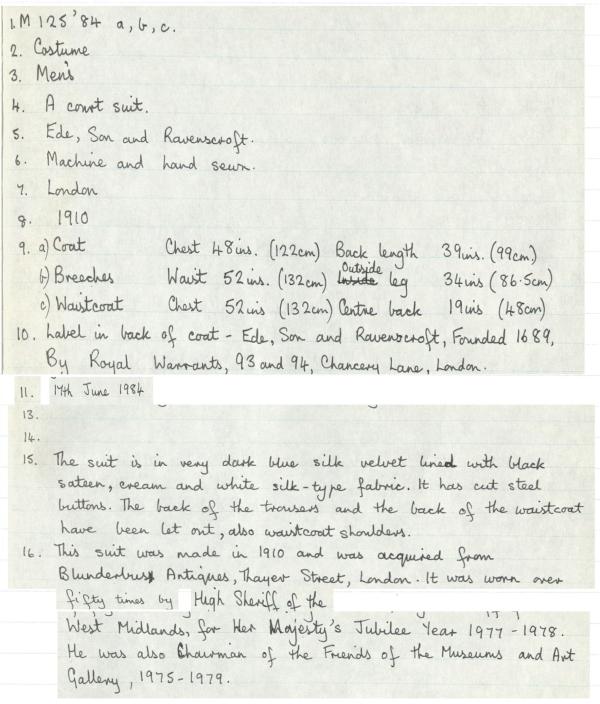 1. M 125'84 a, b, c.
2. Costume
3. Men's
4. A court suit.
5. Ede, Son and Ravenscroft.
6. Machine and hand sewn.
7. London
8. 1910
9. a) Coat Chest 48ins. (122cm) Back length 39ins. (99cm)
b) Breeches Waist 52ins. (132cm) Inside Outside leg 34ins (86.5cm)
c) Waistcoat Chest 52ins (132cm) Centre back 19ins (48cm)
10. Label in back of coat - Ede, Son and Ravenscroft, Founded 1689,
By Royal Warrants, 93 and 94, Chancery Lane, London.
11. 14th June 1984
13.
14.
15. The suit is in very dark blue silk velvet lined with black
sateen, cream and white silk-type fabric. It has cut steel
buttons. The back of the trousers and the back of the waistcoat
have been let out, also waistcoat shoulders.
16. This suit was made in 1910 and was acquired from
Blunderbuss Antiques, Thayer Street, London. It was worn over
fifty times by High Sheriff of the
West Midlands, for Her Majesty's Jubilee Year 1977-1978.
He was also Chairman of the Friends of the Museums and Art
Gallery, 1975-1979.